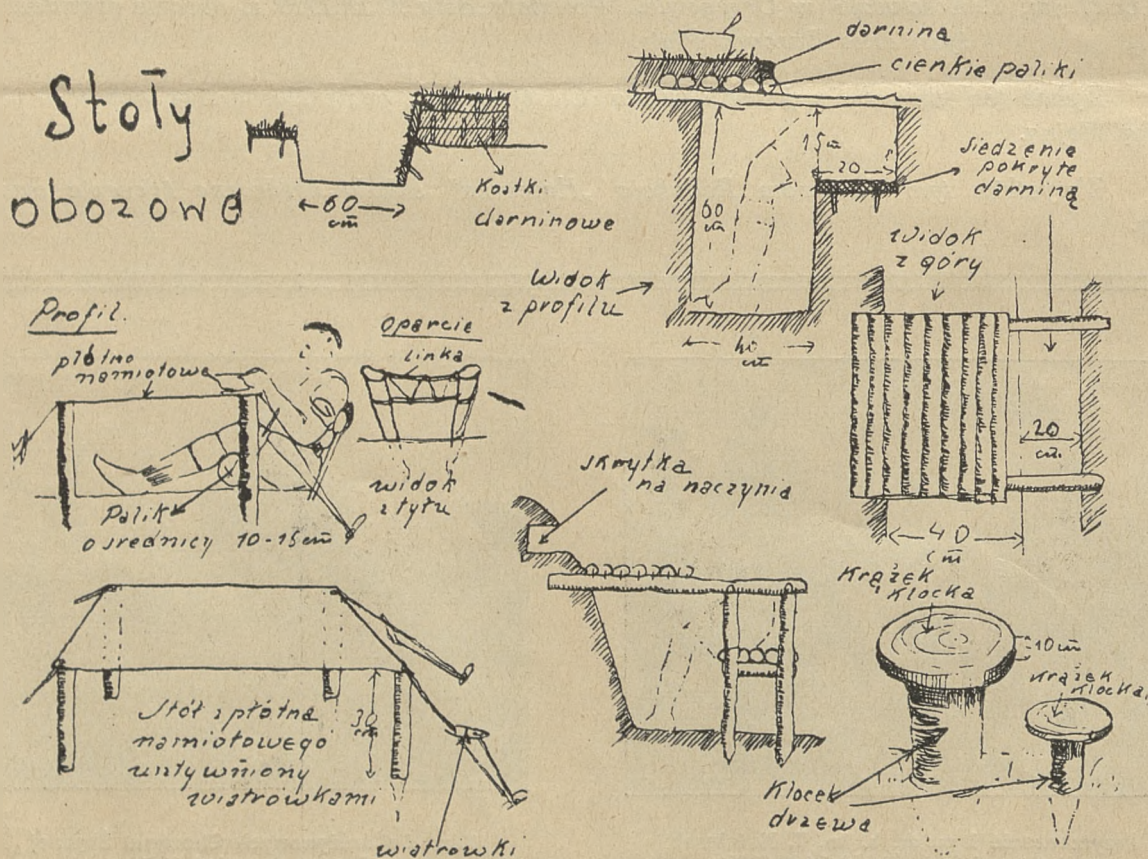 Stoły
obozowe
60
cm
Kostki
darninowe
darnina
cienkie paliki
15 cm
20
60
cm
Siedzenia
pokryte
darniną
Widok
z profilu
40
cm
Widok
z góry
20
cm.
40
cm
Profil.
płótno
namiotowe
Palik
o średnicy 10-15 cm
oparcie
linka
widok
z tyłu
skrytka
na naczynia
Stół z płótna
namiotowego
usztywniony
wiatrówkami
30
cm
wiatrówki
Krążek
klocka
10 cm
Krążek
klocka
Klocek
drzewa